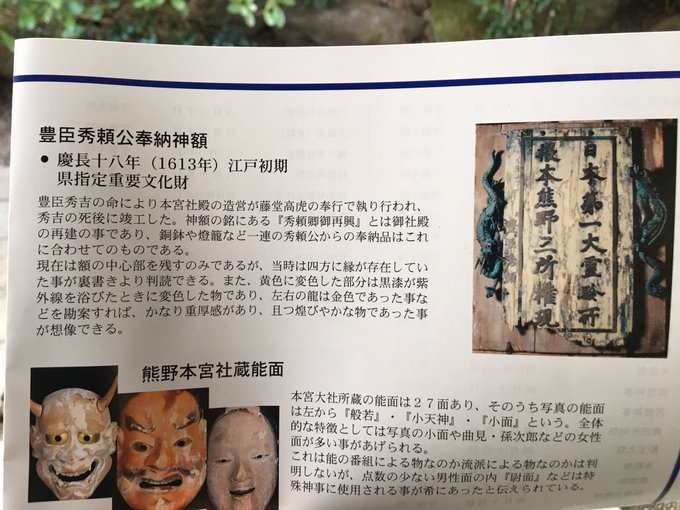 豊臣秀頼公奉納神額
● 慶長十八年（1613年）江戸初期
県指定重要文化財
豊臣秀吉の命により本宮社殿の造営が藤堂高虎の奉行で執り行われ、
秀吉の死後に竣工した。神額の銘にある『秀頼卿御再興』とは御社殿
の再建の事であり、銅鉢や燈籠など一連の秀頼公からの奉納品はこれ
に合わせてのものである。
現在は額の中心部を残すのみであるが、当時は四方に縁が存在してい
た事が裏書きより判読できる。また、黄色に変色した部分は黒漆が紫
外線を浴びたときに変色した物であり、左右の龍は金色であった事な
どを勘案すれば、かなり重厚感があり、且つ煌びやかな物であった事
が想像できる。
日本第一大霊験所
根本熊野三所権現
熊野本宮社蔵能面
本宮大社所蔵の能面は２７面あり、そのうち写真の能面
は左から『般若』・『小天神』・『小面』という。全体
的な特徴としては写真の小面や曲見・孫次郎などの女性
面が多い事があげられる。
これは能の番組による物なのか流派による物なのかは判
明しないが、点数の少ない男性面の内『尉面』などは特
殊神事に使用される事が希にあったと伝えられている。